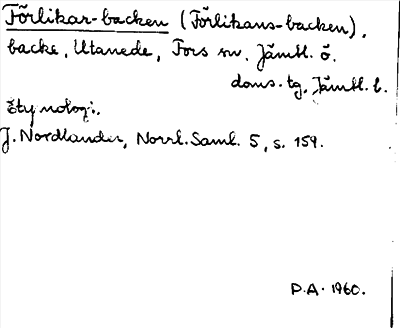 Förlikar-backen (Förlikans-backen),
backe, Utanede, Fors sn, Jämtl. ö.
doms.tg, Jämtl. l.
Etymologi.
J. Nordlander, Norrl. Saml. 5, s. 159.
P.A. 1960.